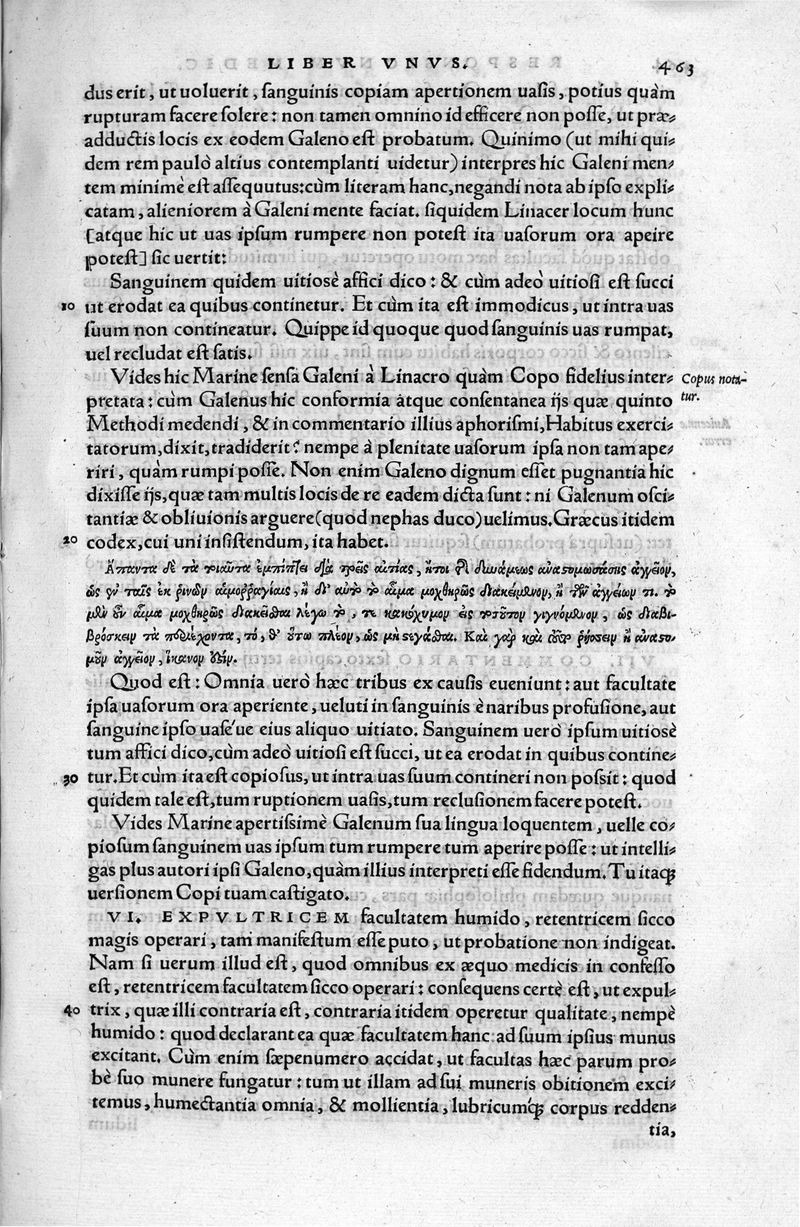 LIBER VNVS. 463
dus erit, ut uoluerit, sanguinis copiam apertionem uasis, potius quàm
rupturam facere solere: non tamen omnino id efficere non posse, ut præ-
adductis locis ex eodem Galeno est probatum. Quinimo (ut mihi qui-
dem rem paulò altius contemplanti uidetur) interpres hic Galeni men-
tem minimè est assequutus: cùm literam hanc, negandi nota ab ipso expli-
catam, alieniorem à Galeni mente faciat. siquidem Linacer locum hunc
[atque hic ut uas ipsum rumpere non potest ita uasorum ora apeire
potest] sic uertit:
Sanguinem quidem uitiosè affici dico: & cùm adeò uitiosi est succi
10 ut erodat ea quibus continetur. Et cùm ita est immodicus, ut intra uas
suum non contineatur. Quippe id quoque quod sanguinis uas rumpat,
uel recludat est satis.
Vides hic Marine sensa Galeni à Linacro quàm Copo fidelius inter-
Copus nota-
pretata: cùm Galenus hic conformia atque consentanea ijs quæ quinto
tur.
Methodi medendi, & in commentario illius aphorismi, Habitus exerci-
tatorum, dixit, tradiderit? nempe à plenitate uasorum ipsa non tam ape-
riri, quàm rumpi posse. Non enim Galeno dignum esset pugnantia hic
dixisse ijs, quæ tam multis locis de re eadem dicta sunt: ni Galenum osci-
tantiæ & obliuionis arguere (quod nephas duco) uelimus. Græcus itidem
20 codex, cui uni insistendum, ita habet.
Ἅπαντα δὲ τὰ τοιαῦτα ἐμπίπτει διὰ τρεῖς αἰτίας, ἤτοι δυνάμεως ἀναστομωσάσης ἀγγεῖον,
ὡς ἐν ταῖς ἐκ ῥινῶν αἱμοῤῥαγίαις, ἢ δι' αὐτὸ τὸ αἷμα μοχθηρῶς διακείμενον, ἢ τῶν ἀγγείων τι. τὸ
μὲν οὖν αἷμα μοχθηρῶς διακεῖσθαι λέγω τὸ, τε κακόχυμον εἰς τοσοῦτον γιγνόμενον, ὡς διαβι-
βρώσκειν τὰ περιέχοντα, τό, θ' οὕτω πλέον, ὡς μὴ στέγεσθαι. Καὶ γὰρ καὶ ῥήσσειν ἢ ἀναστο-
μοῦν ἀγγεῖον, ἱκανόν ἐστιν.
Quod est: Omnia uerò hæc tribus ex causis eueniunt: aut facultate
ipsa uasorum ora aperiente, ueluti in sanguinis è naribus profusione, aut
sanguine ipso uase'ue eius aliquo uitiato. Sanguinem uerò ipsum uitiosè
tum affici dico, cùm adeò uitiosi est succi, ut ea erodat in quibus contine-
30 tur. Et cùm ita est copiosus, ut intra uas suum contineri non possit: quod
quidem tale est, tum ruptionem uasis, tum reclusionem facere potest.
Vides Marine apertissimè Galenum sua lingua loquentem, uelle co-
piosum sanguinem uas ipsum tum rumpere tum aperire posse: ut intelli-
gas plus autori ipsi Galeno, quàm illius interpreti esse fidendum. Tu itaq;
uersionem Copi tuam castigato.
VI. EXPVLTRICEM facultatem humido, retentricem sicco
magis operari, tam manifestum esse puto, ut probatione non indigeat.
Nam si uerum illud est, quod omnibus ex æquo medicis in confesso
est, retentricem facultatem sicco operari: consequens certè est, ut expul-
40 trix, quæ illi contraria est, contraria itidem operetur qualitate, nempè
humido: quod declarant ea quæ facultatem hanc ad suum ipsius munus
excitant. Cùm enim sæpenumero accidat, ut facultas hæc parum pro-
bè suo munere fungatur: tum ut illam ad sui muneris obitionem exci-
temus, humectantia omnia, & mollientia, lubricumq́; corpus redden-
tia,